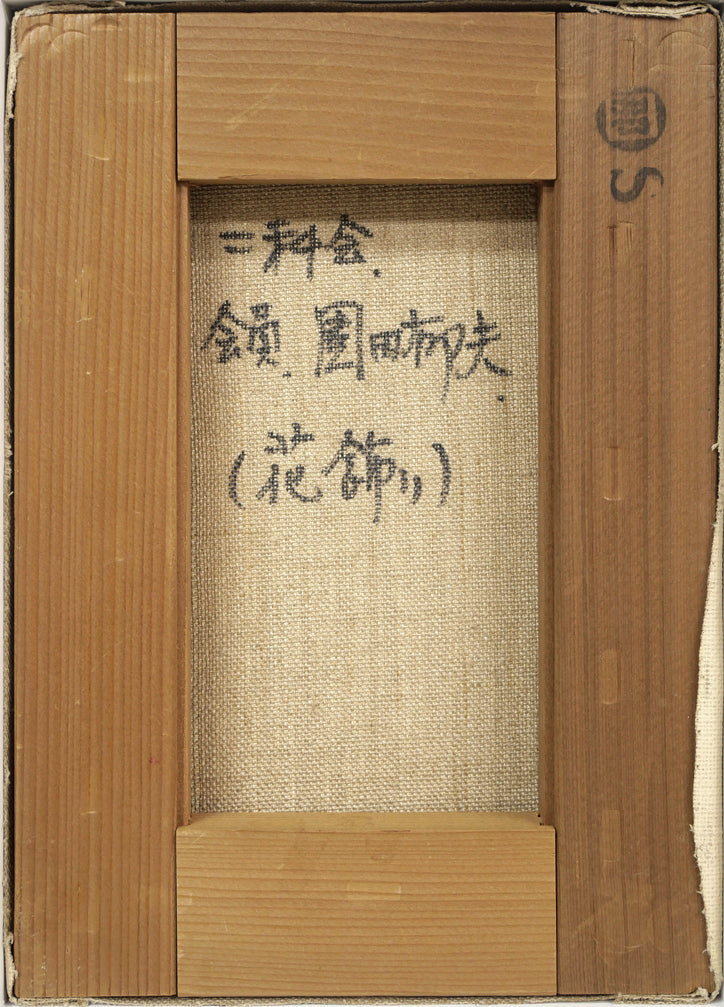 二科会.
会員. 園田郁夫.
(花飾り)
S